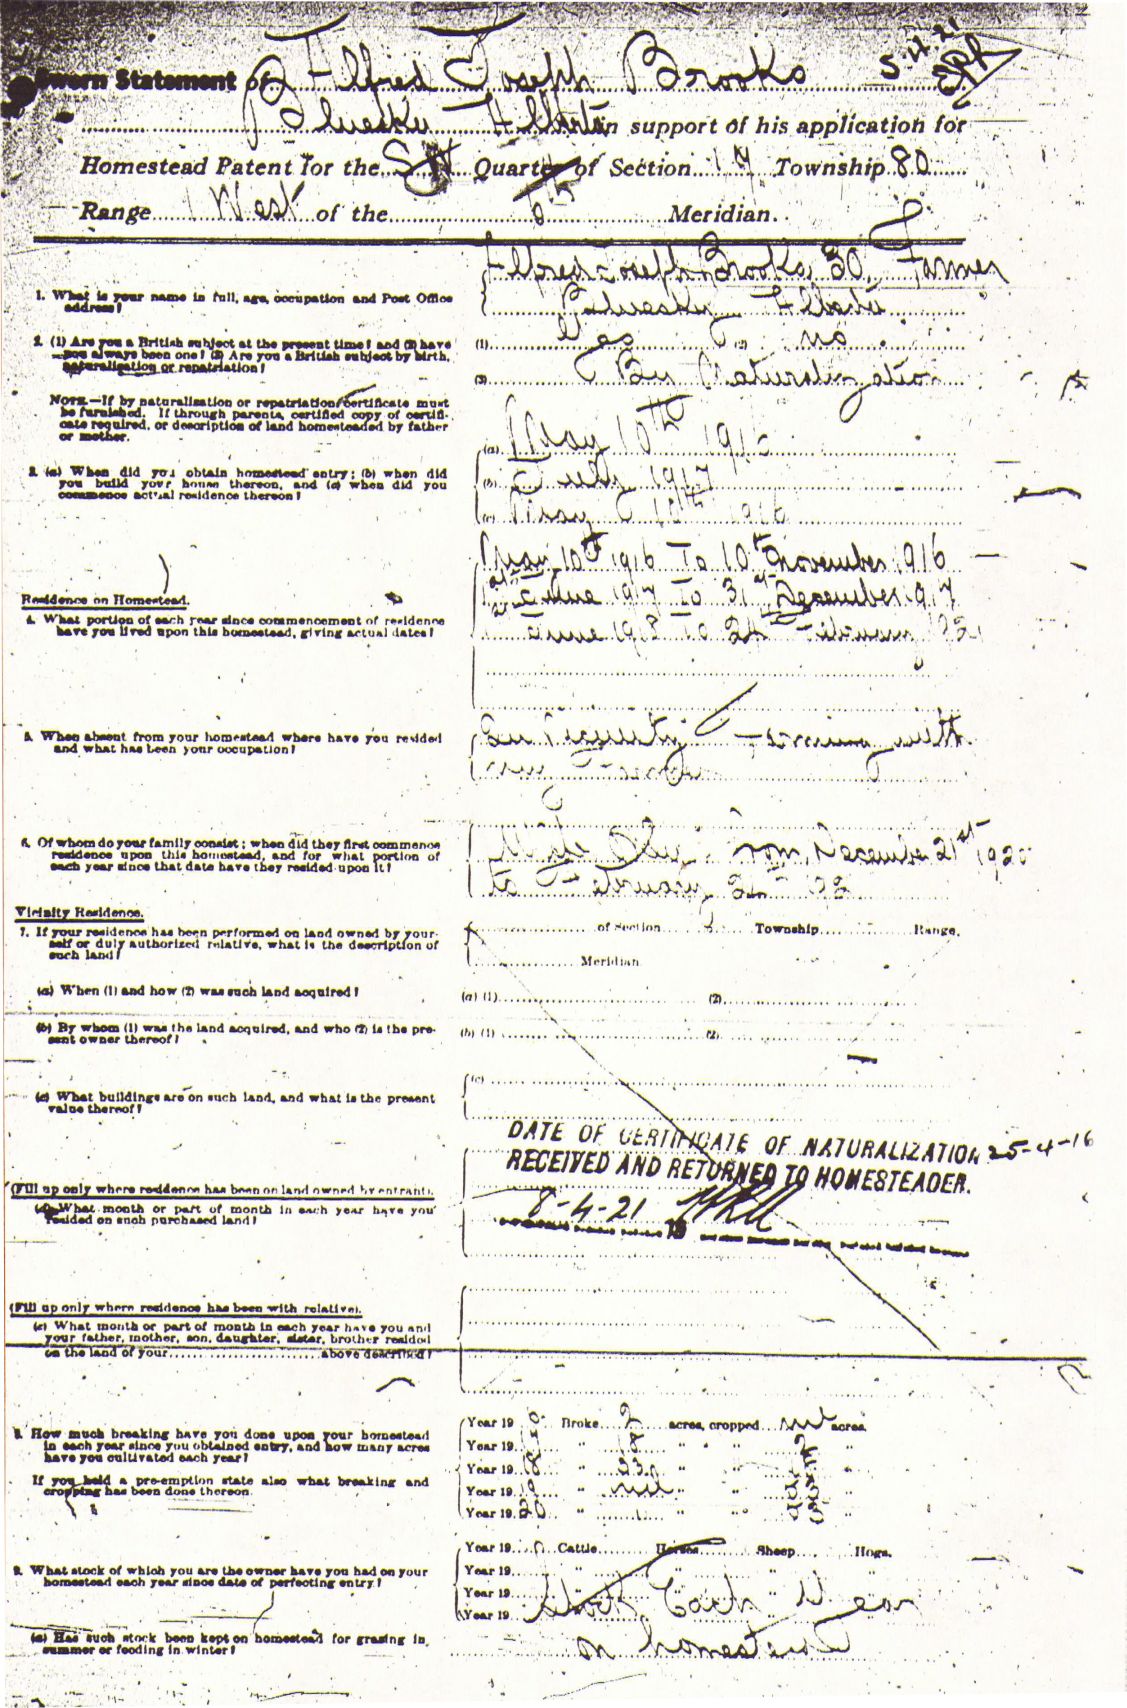 Sworn Statement of Alfred Joseph Brooks 5-4-21
Bluesky Alberta in support of his application for
Homestead Patent for the SW Quarter of Section 17 Township 80
Range 1 West of the 6th Meridian.
Alfred Joseph Brooks, 30, Farmer
1. What is your name in full, age, occupation and Post Office
address?
Bluesky Alberta
2. (1) Are you a British subject at the present time? and (2) have
you always been one? (3) Are you a British subject by birth,
naturalisation or repatriation?
(1) Yes (2) no
(3) By Naturalization
NOTE.—If by naturalisation or repatriation certificate must
be furnished. If through parents, certified copy of certifi-
cate required, or description of land homesteaded by father
or mother.
3. (a) When did you obtain homestead entry; (b) when did
you build your house thereon, and (c) when did you
commence actual residence thereon?
(a) May 10th
(b) July 1917
(c) May 10th 1916
Residence on Homestead.
4. What portion of each year since commencement of residence
have you lived upon this homestead, giving actual dates?
May 10th 1916 To 10th November 1916
June 1917 To 31st December 1917
June 1918 To 24 February
5. When absent from your homestead where have you resided
and what has been your occupation?
Farming with
my
6. Of whom do your family consist; when did they first commence
residence upon this homestead, and for what portion of
each year since that date have they resided upon it?
Wife Only. From December 21st 1920
to February 24th
Vicinity Residence.
7. If your residence has been performed on land owned by your-
self or duly authorized relative, what is the description of
such land?
of Section Township Range,
Meridian.
(a) When (1) and how (2) was such land acquired?
(a) (1) (2)
(b) By whom (1) was the land acquired, and who (2) is the pre-
sent owner thereof?
(b) (1) (2)
(c) What buildings are on such land, and what is the present
value thereof?
(c)
DATE OF CERTIFICATE OF NATURALIZATION 25-4-16
RECEIVED AND RETURNED TO HOMESTEADER.
8-4-21 19
(Fill up only where residence has been on land owned by entrant).
(d) What month or part of month in each year have you
resided on such purchased land?
(Fill up only where residence has been with relative).
(e) What month or part of month in each year have you and
your father, mother, son, daughter, sister, brother resided
on the land of your above described?
8. How much breaking have you done upon your homestead
in each year since you obtained entry, and how many acres
have you cultivated each year?
If you held a pre-emption state also what breaking and
cropping has been done thereon.
Year 19 Broke 2 acres, cropped nil acres.
Year 19 17 " 18 " " 2 "
Year 19 18 " 33 " " "
Year 19 19 " nil " " "
Year 19 20 " " " " "
9. What stock of which you are the owner have you had on your
homestead each year since date of perfecting entry?
Year 19 Cattle Horses Sheep Hogs.
Year 19
Year 19
Year 19 Stock Each Year
on homestead
(a) Has such stock been kept on homestead for grazing in
summer or feeding in winter?